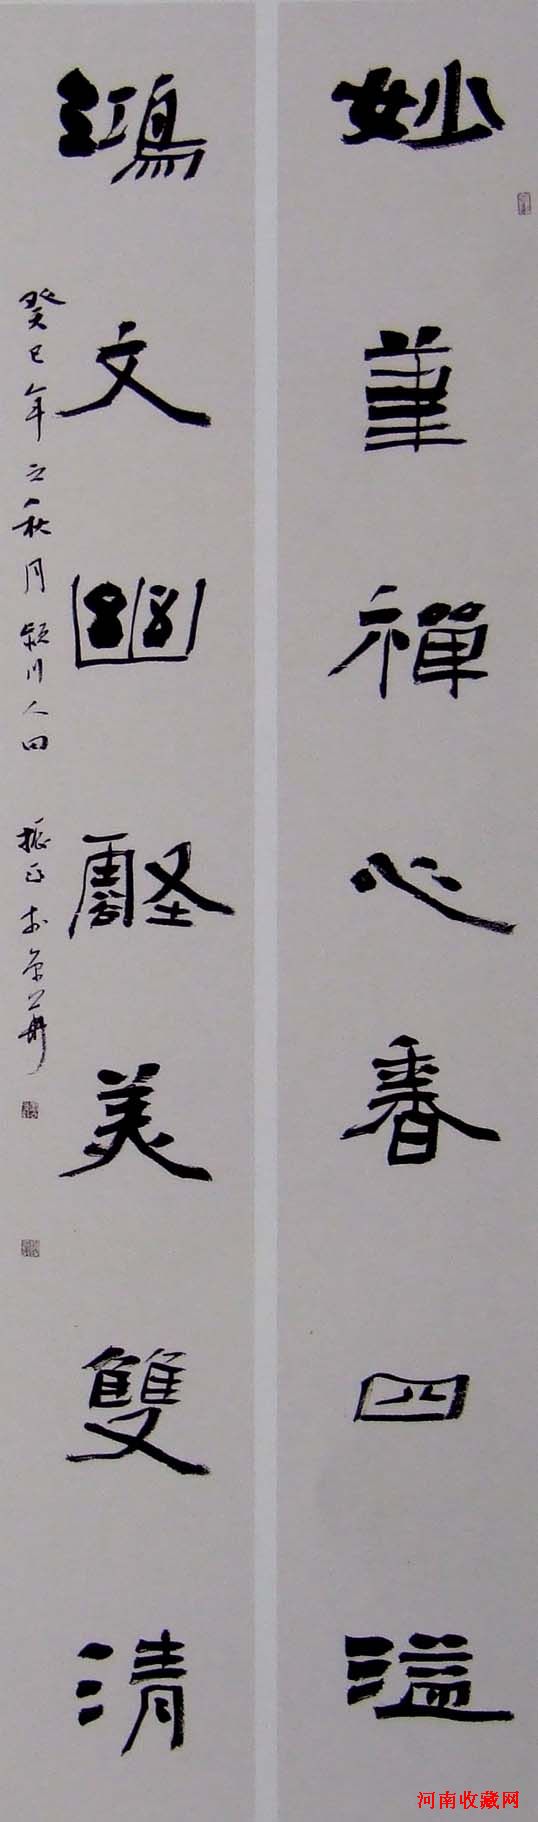 妙筆禪心香四溢
鴻文幽壑美雙清
癸巳年之秋月潁川人田振正於京華
河南收藏网